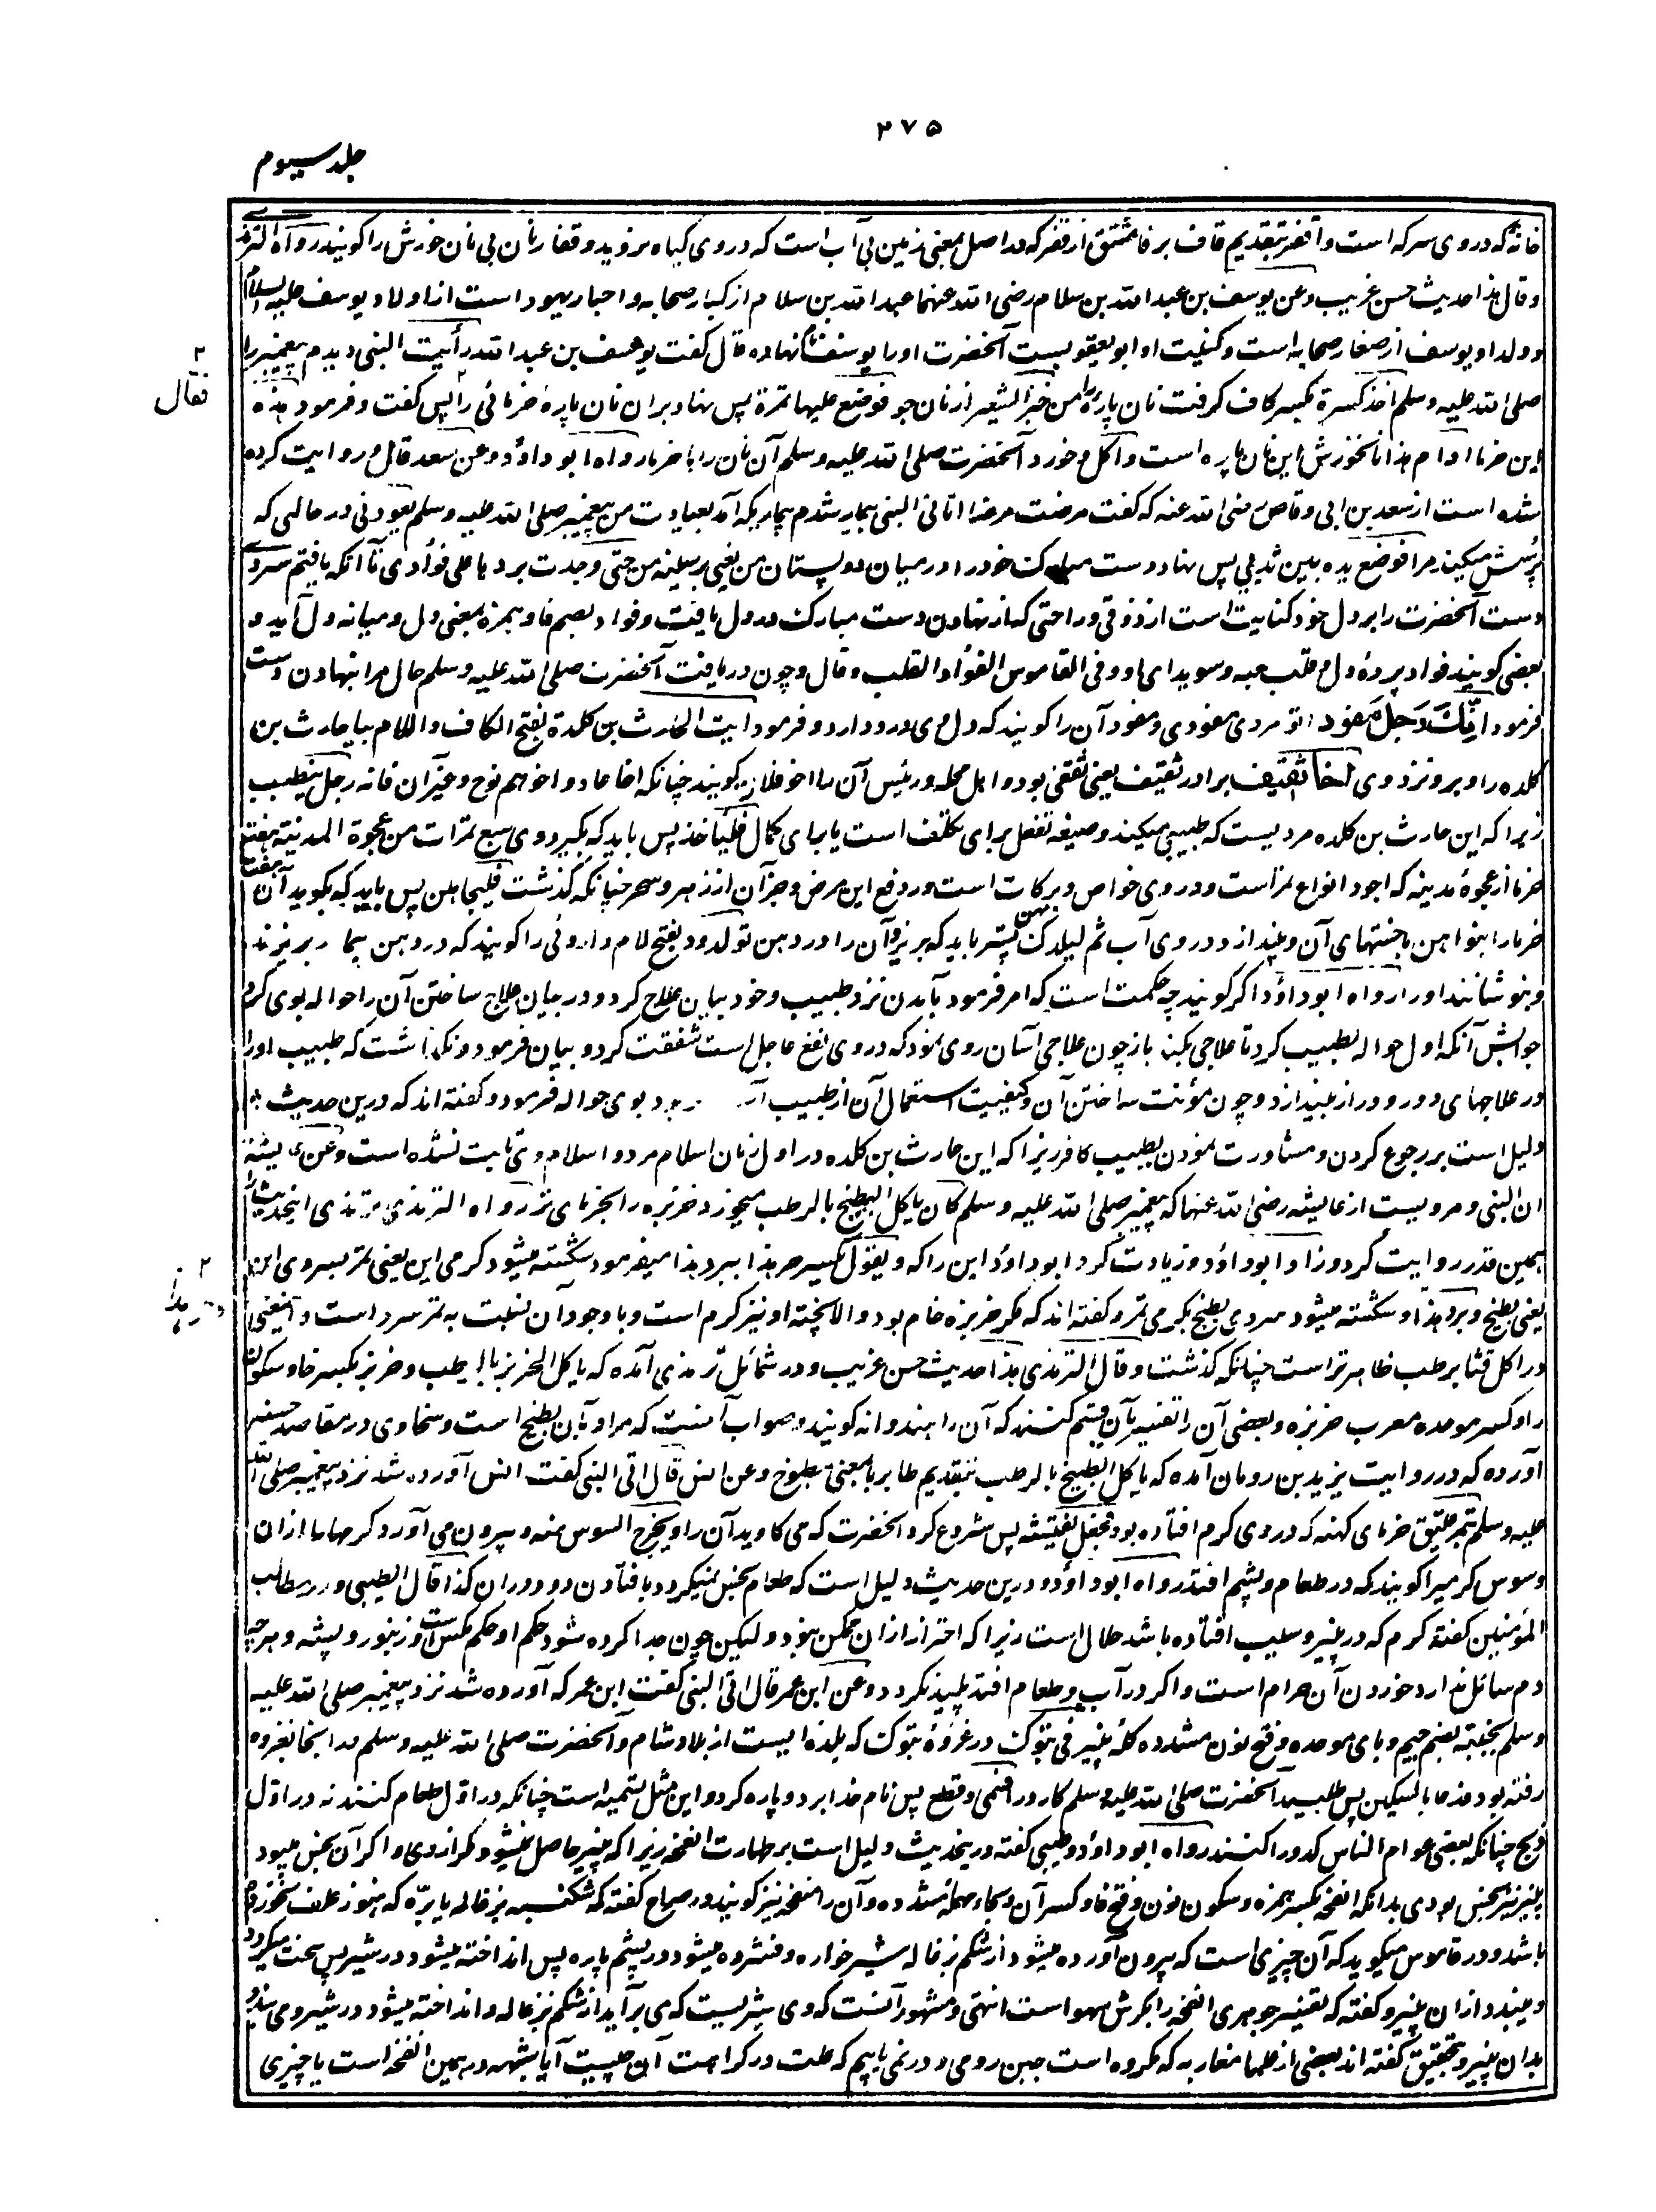 ۲۷۵
جلد سیوم
خانه که در وی سرکه است و اقفر بتقدیم قاف بر فا مشتق از قفر که در اصل بمعنی زمین بی آب است که در وی کیاه نروید و قفار نان بی نان خورش را کویند رواه الترمذ
و قال هذا حدیث حسن غریب وعن یوسف بن عبد الله بن سلام رضی الله عنهما عبد الله بن سلام از کبار صحابه و احبار یهود است از اولاد یوسف علیه السلام
و ولد او یوسف از صغار صحابه است و کنیت او ابو یعقوبست آنحضرت او را یوسف نام نهاده قال کفت یوسف بن عبد الله رأیت النبی دیدم پیغمبر را
صلی الله علیه وسلم اخذ کسرة بکسر کاف کرفت نان پارهٔ را من خبز الشعیر از نان جو فوضع علیها تمرة پس نهاد بر ان نان پارهٔ خرمائی را پس کفت و فرمود هذه
۲ فقال
این خرما ادام هذا نانخورش این نان پاره است و اکل و خورد آنحضرت صلی الله علیه وسلم آن نان را با خرما رواه ابو داؤد وعن سعد قال و روایت کرده
شده است از سعد بن ابی وقاص رضی الله عنه که کفت مرضت مرضا اتانی النبی بیمار شدم بیماریکه آمد بعیادت من پیغمبر صلی الله علیه وسلم یعودنی در حالی که
پرسش میکند مرا فوضع یده بین ثدیی پس نهاد دست مبارک خود را در میان دو پستان من یعنی بر سینه من حتی وجدت بردها علی فؤادی تا آنکه یافتم سردی
دست آنحضرت را بر دل خود کنایت است از ذوقی و راحتی که از نهادن دست مبارک در دل یافت و فواد بضم فا و همزه بمعنی دل و میانه دل آید و
بعضی کویند فواد پردهٔ دل و قلب حبه و سویدای او و فی القاموس الفؤاد القلب وقال و چون دریافت آنحضرت صلی الله علیه وسلم حال مرا بنهادن دست
فرمود انک رجل مفود تو مردی مفودی و مفود آن را کویند که دل وی درد دارد و فرمود ایت الحارث بن کلدة بفتح الکاف و اللام بیا حارث بن
کلده را و برو نزد وی اخا ثقیف برادر ثقیف یعنی ثقفی بود و اهل محله و رئیس آن را اخو فلان کویند چنانکه اخا عاد و اخوهم نوح و غیر آن فانه رجل یتطبب
زیرا که این حارث بن کلده مردیست که طبیبی میکند و صیغه تفعل برای تکلف است یا برای کمال فلیأخذ پس باید که بکیرد وی سبع تمرات من عجوة المدینة هفت
خرما از عجوهٔ مدینه که اجود انواع تمر است و در وی خواص و برکات است در دفع این مرض و جز آن از زهر و سحر چنانکه کذشت فلیجأهن پس باید که بکوبد آن هفت
خرما را بنواهن با خستهای آن و بیندازد در وی آب ثم لیلدک بهن پستر باید که بریزد آن را در دهن تو لدود بفتح لام داروئی را کویند که در دهن بیمار بریزند
و بنوشانند او را رواه ابو داؤد اکر کویند چه حکمت است که امر فرمود بآمدن نزد طبیب و خود بیان علاج کرد و در میان علاج ساختن آن را حواله بوی کرد
جوابش آنکه اول حواله بطبیب کرد تا علاجی بکند باز چون علاجی آسان روی نمود که در وی نفع عاجل است شفقت کرد و بیان فرمود و نکذاشت که طبیب او را
در علاجهای دور و دراز بیندازد و چون مؤنت ساختن آن و کیفیت استعمال آن از طبیب آ... بود بوی حواله فرمود و کفته اند که درین حدیث
دلیل است بر رجوع کردن و مشاورت نمودن بطبیب کافر زیرا که این حارث بن کلده در اول زمان اسلام مرد و اسلام وی ثابت نشده است وعن عایشة
ان النبی و مرویست از عایشه رضی الله عنها که پیغمبر صلی الله علیه وسلم کان یأکل البطیخ بالرطب میخورد خربزه را بخرمای تر رواه الترمذی ترمذی اینحدیث را
بهمین قدر روایت کرد و زاد ابو داؤد و زیادت کرد ابو داؤد این را که و یقول یکسر حر هذا ببرد هذا میفرمود شکسته میشود کرمی این یعنی تمر بسردی این
یعنی بطیخ و برد هذا و شکسته میشود سردی بطیخ بکرمی تمر و کفته اند که مکر خربزه خام بود و الا پخته او نیز کرم است و با وجود آن نسبت به تمر سرد است و اینمعنی
در اکل قثا برطب ظاهرتر است چنانکه کذشت و قال الترمذی هذا حدیث حسن غریب و در شمائل ترمذی آمده که یاکل الخربز بالرطب و خربز بکسر خا و سکون
را و کسر موحده معرب خربزه و بعضی آن را تفسیر بآن قسم کنند که آن را هندوانه کویند و صواب آنست که مراد بآن بطیخ است و سخاوی در مقاصد حسنه
آورده که در روایت یزید بن رومان آمده که یاکل الطبیخ بالرطب بتقدیم طا بر با بمعنی مطبوخ وعن انس قال اتی النبی کفت انس آورده شد نزد پیغمبر صلی الله
علیه وسلم بتمر عتیق خرمای کهنه که در وی کرم افتاده بود فجعل یفتشه پس شروع کرد آنحضرت که می کاوید آن را و یخرج السوس منه و بیرون می آورد کرمها را از ان
و سوس کرمیرا کویند که در طعام و پشم افتد رواه ابو داؤد و درین حدیث دلیل است که طعام نجس نمیکردد بافتادن دود در ان کذا قال الطیبی و در مطالب
المؤمنین کفته کرم که در پنیر و سیب افتاده باشد حلال است زیرا که احتراز از ان ممکن نبود و لیکن چون جدا کرده شود حکم او حکم مکس است و زنبور و پشه و هرچه
دم سائل ندارد خوردن آن حرام است و اکر در آب و طعام افتد پلید نکردد وعن ابن عمر قال اتی النبی کفت ابن عمر که آورده شد نزد پیغمبر صلی الله علیه
وسلم بجبنة بضم جیم و بای موحده و فتح نون مشدده کلهٔ پنیر فی تبوک در غزوهٔ تبوک که بلدهٔ ایست از بلاد شام و آنحضرت صلی الله علیه وسلم در آنجا بغزوه
رفته بود فدعا بالسکین پس طلبید آنحضرت صلی الله علیه وسلم کارد را فسمی و قطع پس نام خدا برد و پاره کرد و این مثل تسمیه است چنانکه در اول طعام کنند نه در اول
ذبح چنانکه بعضی عوام الناس کدو را کنند رواه ابو داؤد و طیبی کفته درینحدیث دلیل است بر طهارت انفحه زیرا که پنیر حاصل نمیشود مکر از وی و اکر آن نجس میبود
پنیر نیز نجس بودی بدانکه انفحه بکسر همزه و سکون نون و فتح فا و کسر آن و بحاء مهمله مشدده و آن را منفحه نیز کویند و در صراح کفته که شکنبه بزغاله یا بره که هنوز علف نخورده
باشد و در قاموس میکوید که آن چیزی است که بیرون آورده میشود از شکم بزغاله شیر خواره و فشرده میشود در پشم پاره پس انداخته میشود در شیر پس سخت میکردد
و میبندد از ان پنیر و کفته که تفسیر جوهری انفحه را بکرش سهو است انتهی و مشهور آنست که وی شیریست که می برآید از شکم بزغاله و انداخته میشود در شیر و می بندد
بدان پنیر و بتحقیق کفته اند بعضی از علما مغاربه که مکروه است جبن رومی و در نمی یابیم که علت در کراهت آن چیست آیا بشبهه در همین انفحه است یا چیزی